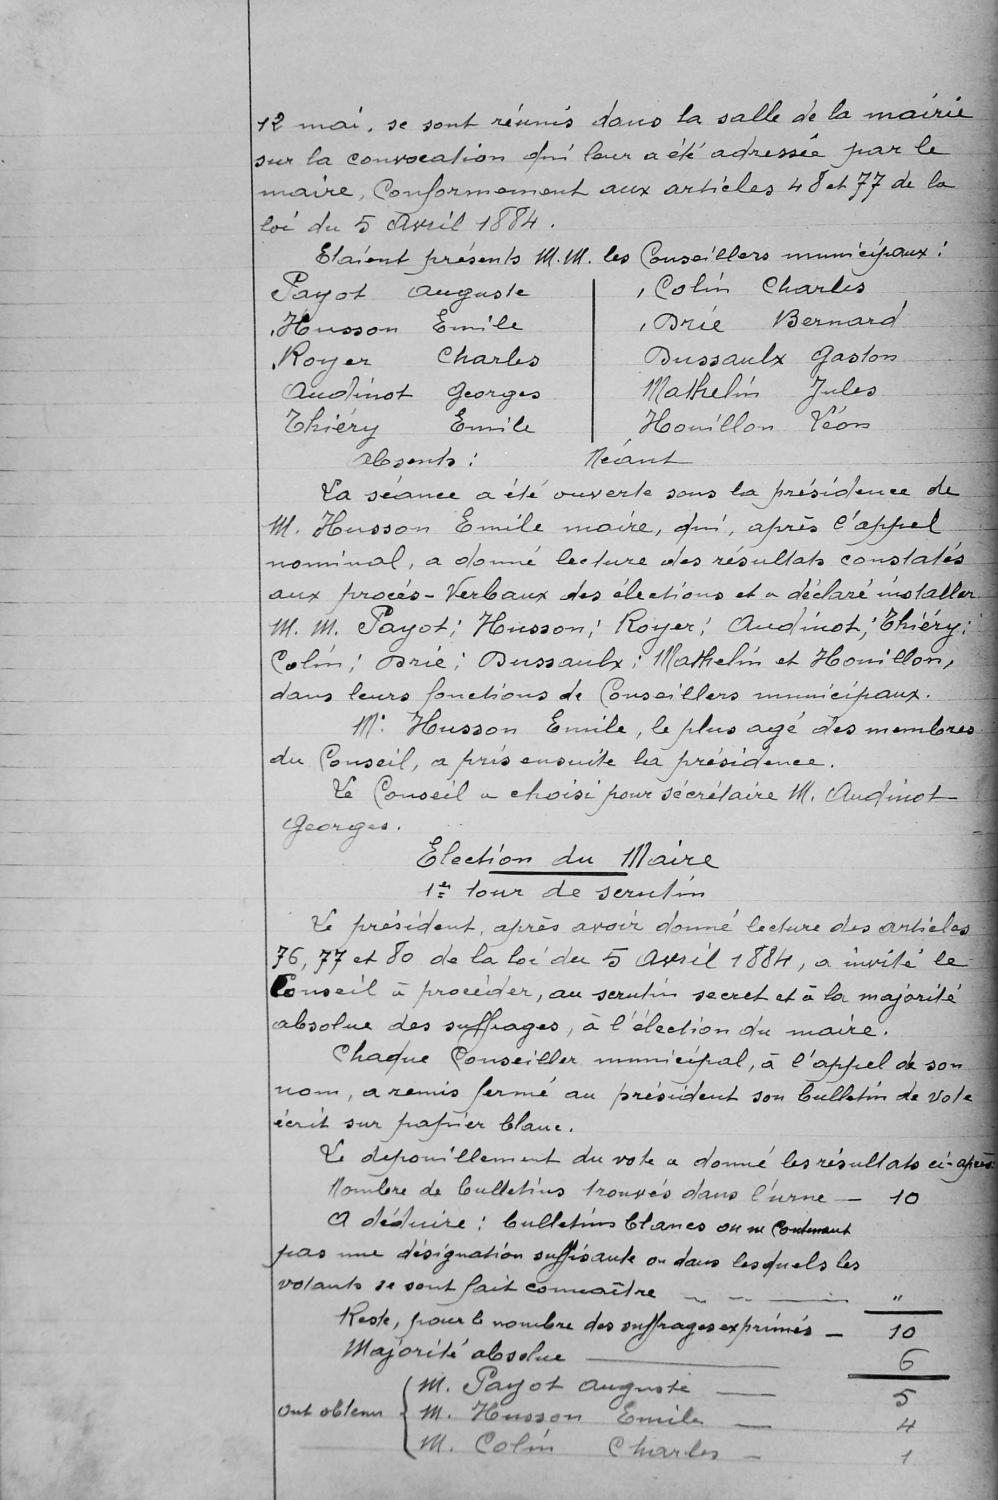 12 mai, se sont réunis dans la salle de la mairie
sur la convocation qui leur a été adressée par le
maire, Conformement aux articles 48 et 77 de la
loi du 5 Avril 1884.
Etaient présents M.M. les Conseillers municipaux :
Payot Auguste
Husson Emile
Royer Charles
Audinot Georges
Thiéry Emile
Colin Charles
Drié Bernard
Dussaulx Gaston
Mathelin Jules
Houillon Léon
Absents : Néant
La séance a été ouverte sous la présidence de
M. Husson Emile maire, qui, après l'appel
nominal, a donné lecture des résultats constatés
aux procés-Verbaux des élections et a déclaré installer
M. M. Payot; Husson; Royer; Audinot; Thiéry;
Colin; Drié; Dussaulx; Mathelin et Houillon,
dans leurs fonctions de Conseillers municipaux.
M. Husson Emile, le plus agé des membres
du Conseil, a pris ensuite la présidence.
Le Conseil a choisi pour sécrétaire M. Audinot
Georges.
Election du Maire
1er tour de scrutin
Le président, après avoir donné lecture des articles
76, 77 et 80 de la loi du 5 Avril 1884, a invité le
Conseil à procéder, au scrutin secret et à la majorité
absolue des suffrages, à l'élection du maire.
Chaque Conseiller municipal, à l'appel de son
nom, a remis fermé au président son bulletin de vote
écrit sur papier blanc.
Le depouillement du vote a donné les résultats ci-après
Nombre de bulletins trouvés dans l'urne — 10
A déduire : bulletins blancs ou ne Contenant
pas une désignation suffisante ou dans lesquels les
votants se sont fait connaître — "
Reste, pour le nombre des suffrages exprimés — 10
Majorité absolue — 6
M. Payot Auguste — 5
Ont obtenu M. Husson Emile — 4
M. Colin Charles — 1